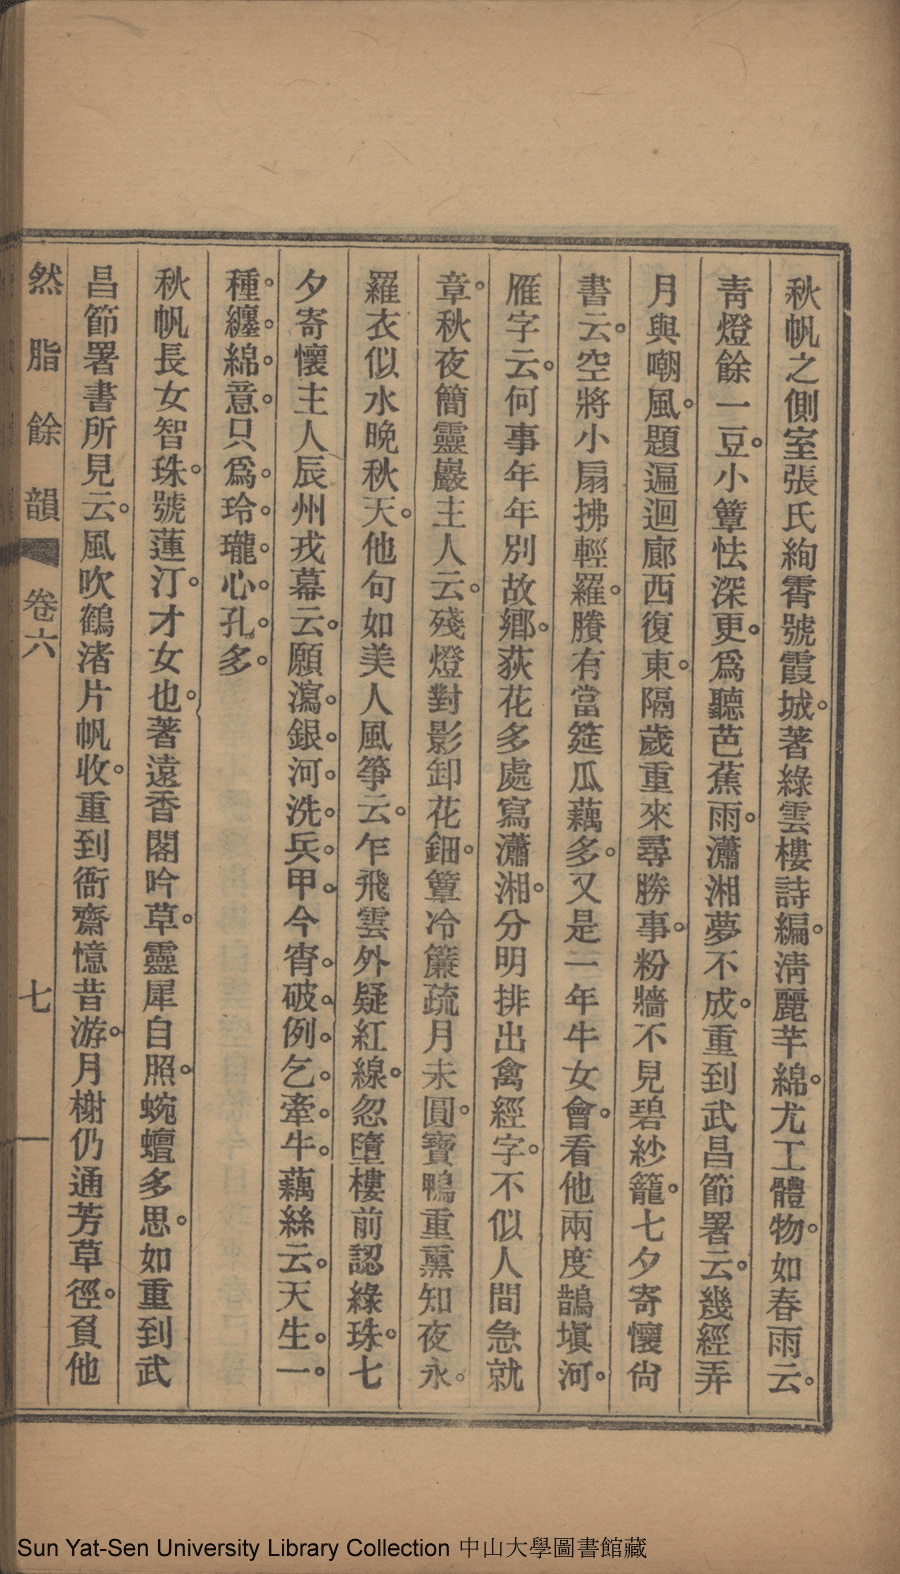 秋帆之側室張氏絢霄號霞城。著綠雲樓詩編。淸麗芊綿。尤工體物。如春雨云。
靑燈餘一豆。小簟怯深更。爲聽芭蕉雨。瀟湘夢不成。重到武昌節署云。幾經弄
月與嘲風。題遍迴廊西復東。隔歲重來尋勝事。粉牆不見碧紗籠。七夕寄懷尙
書云。空將小扇拂輕羅。賸有當筵瓜藕多。又是一年牛女會。看他兩度鵲塡河。
雁字云。何事年年別故鄕。荻花多處寫瀟湘。分明排出禽經字。不似人間急就
章。秋夜簡靈巖主人云。殘燈對影卸花鈿。簟冷簾疏月未圓。寶鴨重熏知夜永。
羅衣似水晚秋天。他句如美人風箏云。乍飛雲外疑紅線。忽墮樓前認綠珠。七
夕寄懷主人辰州戎幕云。願瀉。銀。河。洗。兵。甲。今宵。破。例。乞。牽。牛。藕絲云。天生。一。
種。纏。綿。意。只。爲。玲。瓏。心。孔。多。
秋帆長女智珠。號蓮汀。才女也。著遠香閣吟草。靈犀自照。蜿蟺多思。如重到武
昌節署書所見云。風吹鶴渚片帆收。重到衙齋憶昔游。月榭仍通芳草徑。頁他
然脂餘韻 卷六 七
Sun Yat-Sen University Library Collection 中山大學圖書館藏